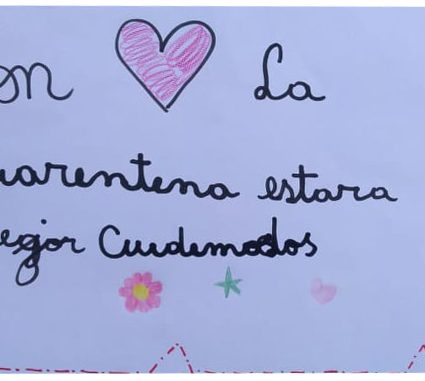 on La
uarentena estara
egor Cuidemodos